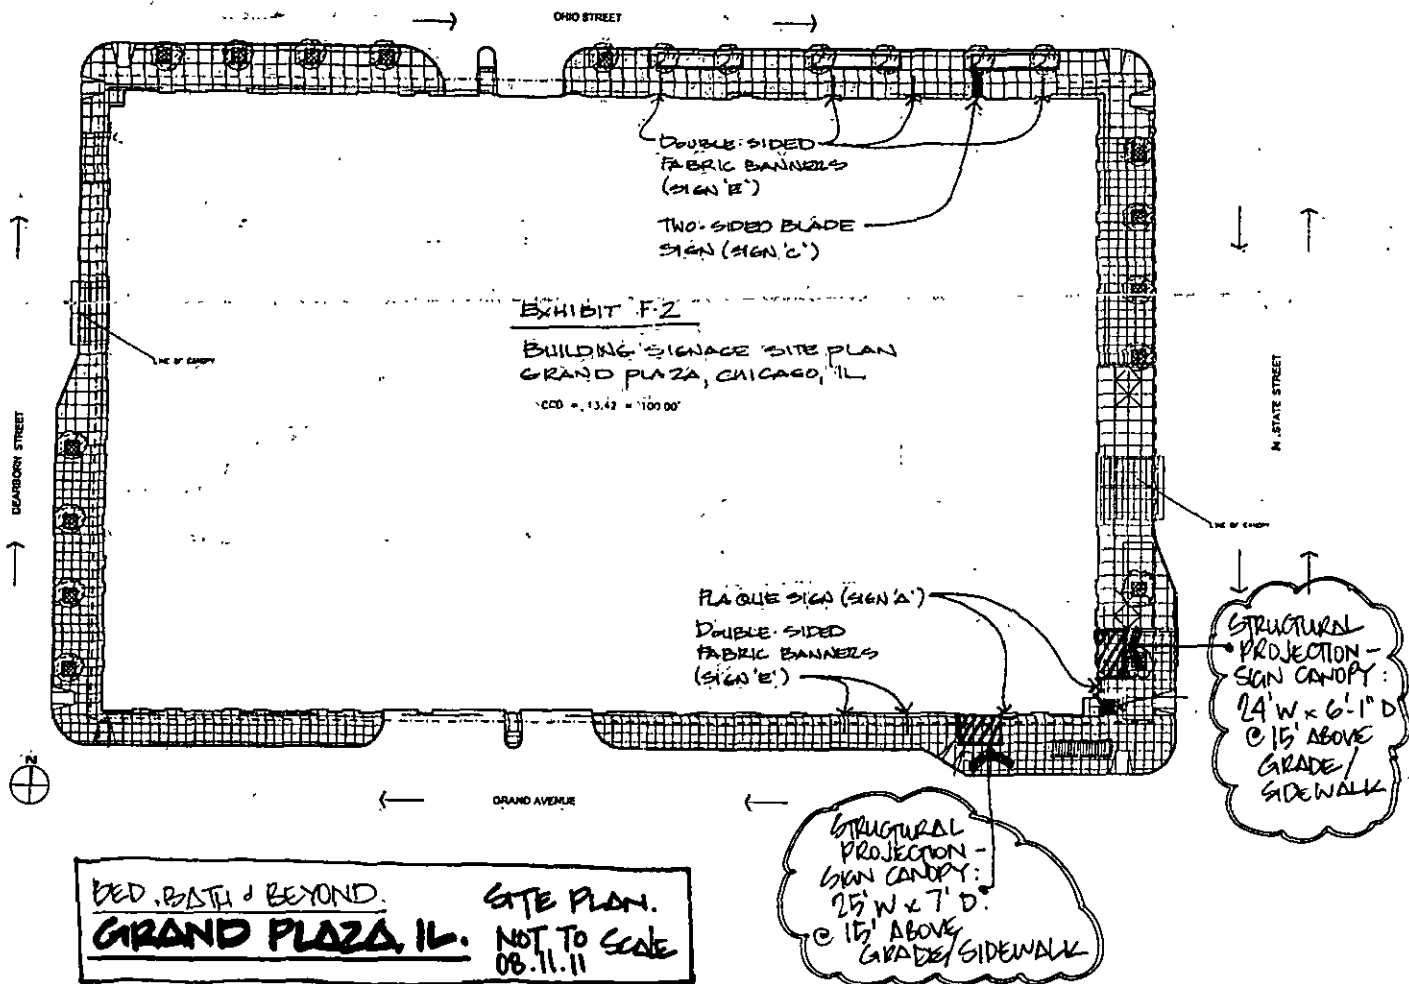 OHIO STREET
DOUBLE-SIDED
FABRIC BANNERS
(SIGN 'E')
TWO-SIDED BLADE
SIGN (SIGN 'C')
EXHIBIT F-2
BUILDING SIGNAGE SITE PLAN
GRAND PLAZA, CHICAGO, IL
CCD = 13.42 = 100.00'
LINE OF CANOPY
DEARBORN STREET
N. STATE STREET
LINE OF CANOPY
PLAQUE SIGN (SIGN 'A')
DOUBLE-SIDED
FABRIC BANNERS
(SIGN 'E')
STRUCTURAL
PROJECTION -
SIGN CANOPY:
24' W x 6'-1" D
@ 15' ABOVE
GRADE/
SIDEWALK
N
GRAND AVENUE
STRUCTURAL
PROJECTION -
SIGN CANOPY:
25' W x 7' D.
@ 15' ABOVE
GRADE/SIDEWALK
BED, BATH & BEYOND.
GRAND PLAZA, IL.
SITE PLAN.
NOT TO SCALE
08.11.11